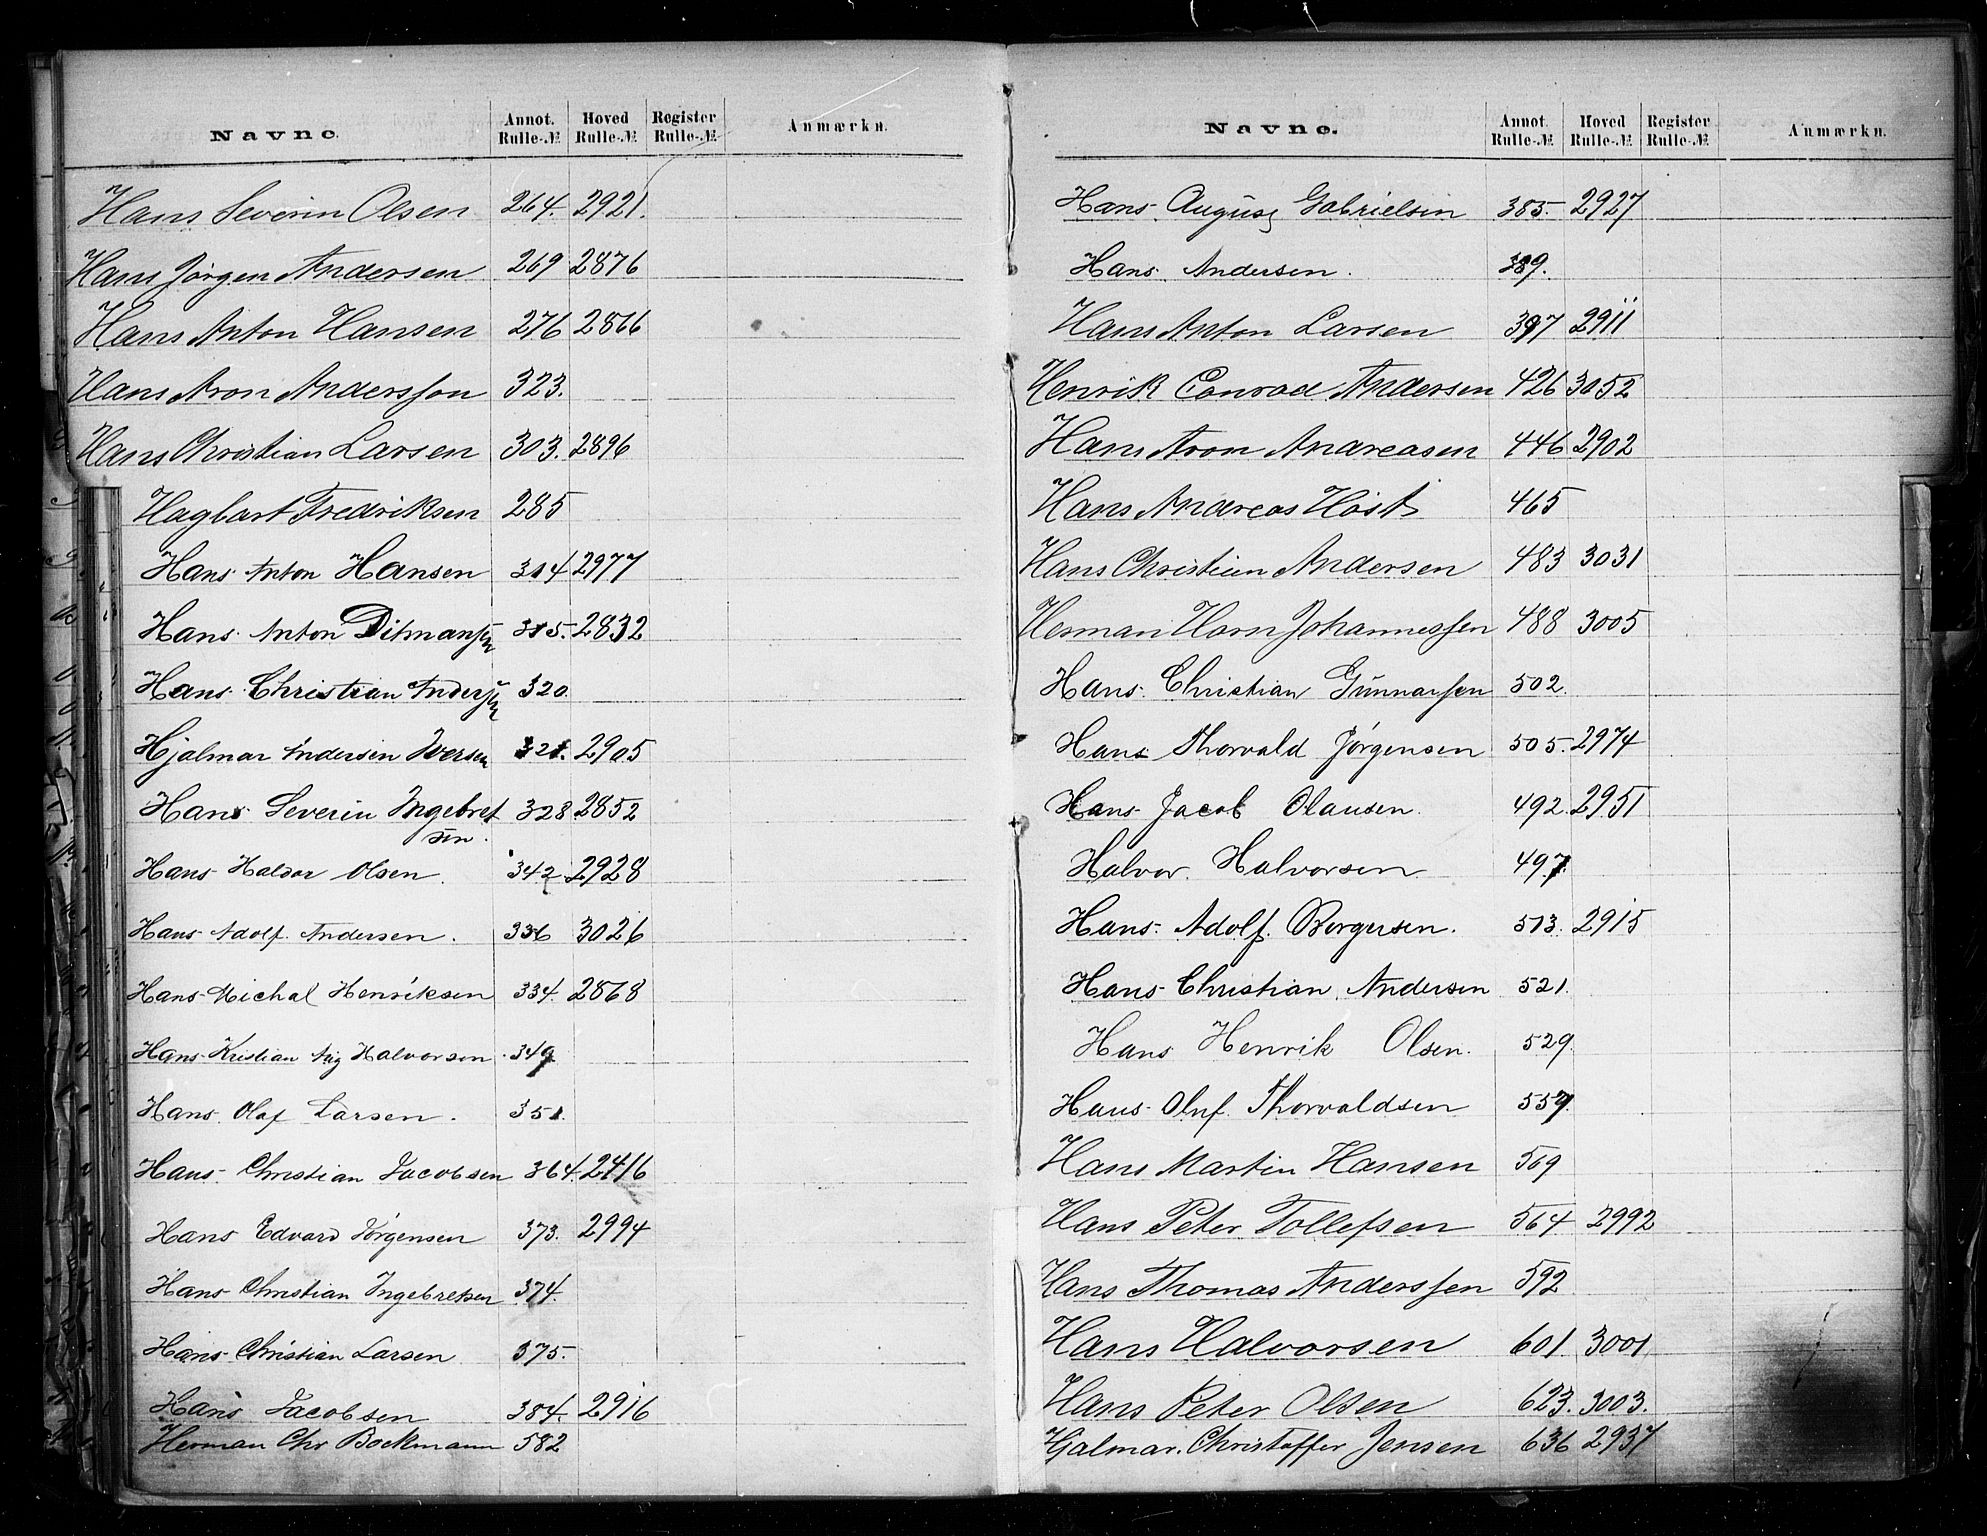 Navne. Annot. Rulle-№ Hoved Rulle-№ Register Rulle-№ Anmærkn.
Hans Severin Olsen 264. 2921.
Hans Jörgen Andersen 269 2876
Hans Anton Hansen 276 2866
Hans Aron Andersson 323.
Hans Christian Larsen 303. 2896
Hagbart Fredriksen 285
Hans Anton Hansen 314 2977
Hans Anton Ditmansen 315. 2832
Hans Christian Andersen 320.
Hjalmar Andersen Iversen 321. 2905
Hans Severin Ingebret 328 2852
sen.
Hans Haldor Olsen. 342 2928
Hans Adolf. Andersen. 336 3026
Hans Michal Henriksen 334. 2868
Hans Kristian Aug Halvorsen 349
Hans Olaf Larsen. 351.
Hans Christian Jacobsen 364. 2416
Hans Edvard Jörgensen 373. 2994
Hans Christian Ingebretsen 374.
Hans Christian Larsen 375.
Hans Jacobsen 384. 2916
Herman Chr Bockmann 582
Navne. Annot. Rulle-№ Hoved Rulle-№ Register Rulle-№ Anmærkn.
Hans August Gabrielsen 385. 2927
Hans Andersen. 389.
Hans Anton Larsen 397 2911
Henrik Conrad Andersen 426 3052
Hans Aron Andreasen 446 2902
Hans Andreas Höst 465
Hans Christian Andersen 483 3031
Herman Horn Johannessen 488 3005
Hans Christian Gunnarsen 502.
Hans Thorvald Jörgensen 505. 2974
Hans Jacob Olausen. 492. 2951
Halvor. Halvorsen 497.
Hans Adolf. Borgersen. 513. 2915
Hans Christian Andersen 521.
Hans Henrik Olsen. 529.
Hans Oluf. Thorvaldsen 557.
Hans Martin Hansen 569
Hans Peter Tollefsen 564. 2992
Hans Thomas Anderssen 592
Hans Halvorsen 601. 3001
Hans Peter Olsen 623. 3003.
Hjalmar. Christoffer Jensen 636 2937